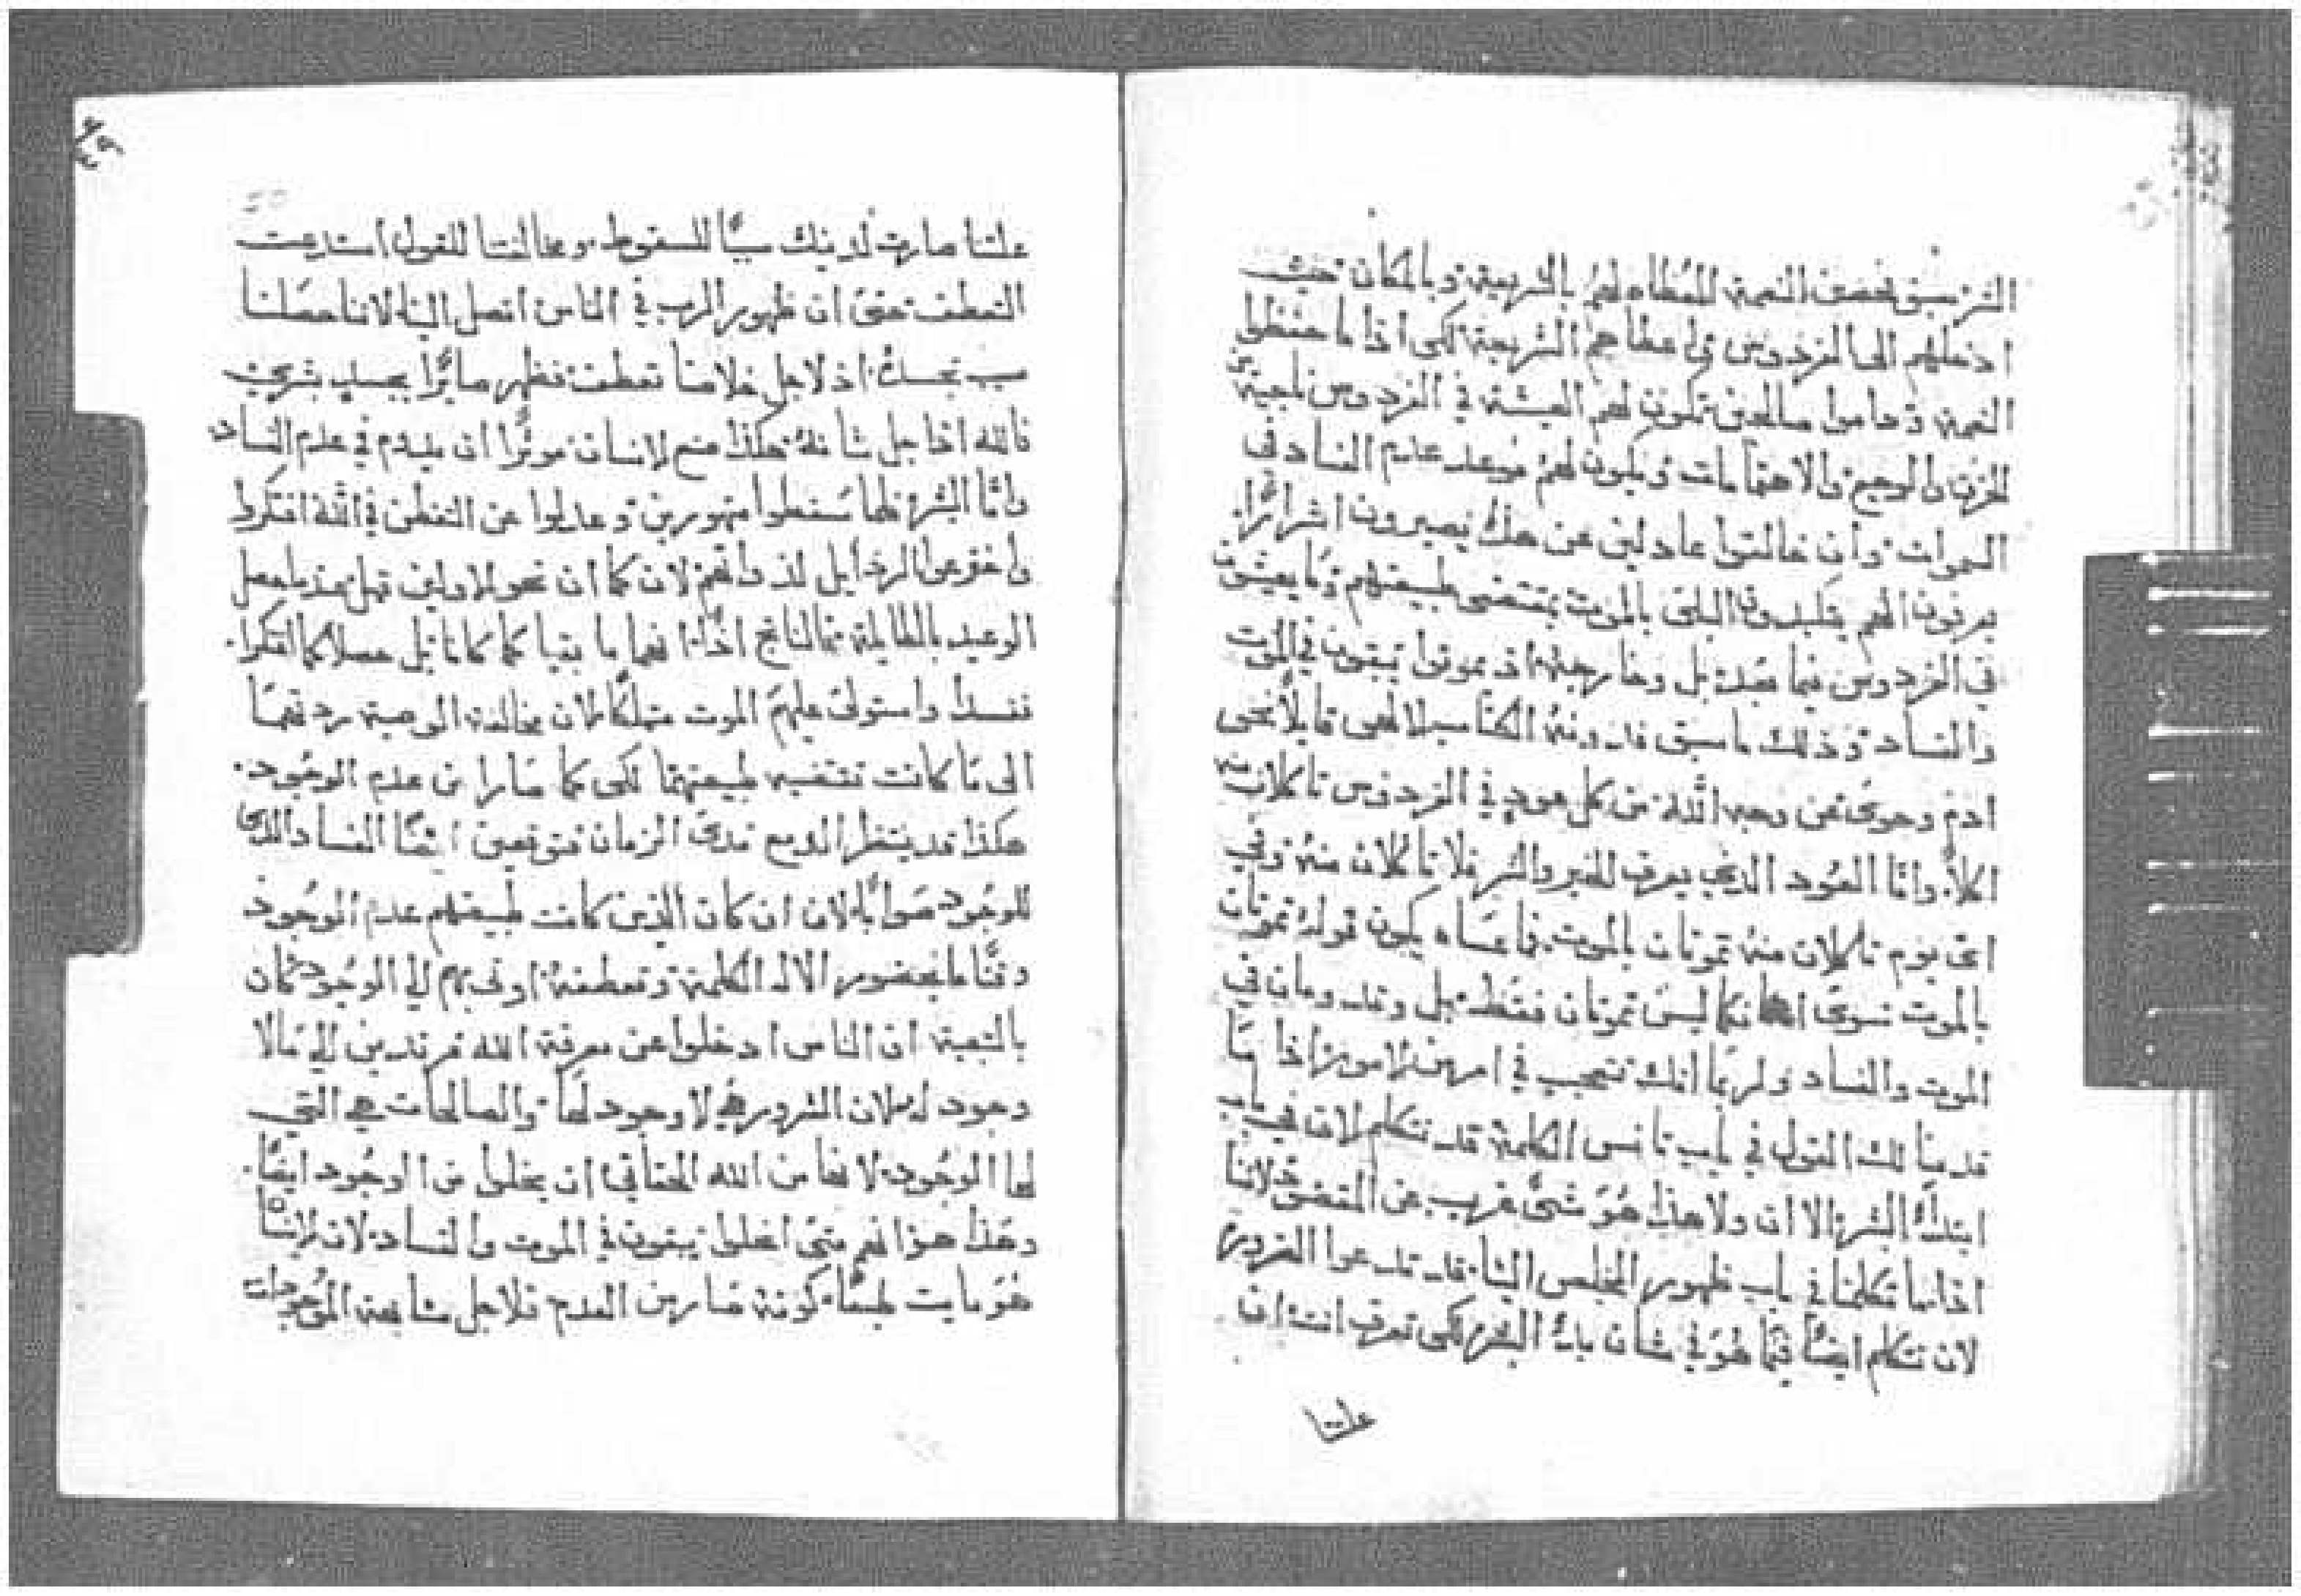 الشر سبق فحصن النعمة المعطاه لهم بالشريعة وبالمكان حيث
ادخلهم الى الفردوس واعطاهم الشريعة لكى اذا ما حفظوا
النعمة وداموا صالحين تكون لهم العيشة في الفردوس ناجية من
الحزن والوجع والاهتمامات ويكون لهم موعد عدم الفساد فى
السموات وان خالفوا عادلين عن هذا يصيرون اشرارًا
يعرفون انهم يتكبدون البلى بالموت بمقتضى طبيعتهم وما يعيشون
في الفردوس فيما بعد بل وخارجه اذ يموتوا يبقون في الموت
والفساد وذلك ما سبق قد دونه الكتاب الالهى قايلًا نحو
ادم وحوى عن وجه الله من كل عود في الفردوس تاكلان منه
اكلًا واما العود الذي يعرف الخير والشر فلا تاكلان منه وفي
اى يوم تاكلان منه تموتان بالموت فما عساه يكون قوله تموتان
بالموت سوى انكما ليس تموتان فقط بل وقد في
الموت والفساد ولربما انك تتعجب في امر من الامور اذا ما
قدمنا لك القول في باب تانس الكلمة قد نتكلم الان في باب
ابتداء البشر الا ان ولا هذا هو شىء غريب عن المقصود لاننا
اذا ما تكلمنا في باب ظهور المخلص الينا قد تدعوا الضرورة
لان نتكلم ايضًا فيما هو في شان بدء البشر لكى تعرف انت ان
علتنا
علتنا صارت لذينك سببًا للسقوط ومخالفتنا للقول استدعت
التعطف حتى ان ظهور الرب في الناس اتصل الينا لاننا حصلنا
سبب تجسده اذ لاجل خلاصنا تعطف فظهر صايرًا بجسد بشرى
فالله اذا جل شانه هكذا صنع الانسان موثرًا ان يدم في عدم الفساد
واما البشر فلما سقطوا متهورين وعدلوا عن التفطن في الله افتكروا
واخترعوا الرذايل لذواتهم لان كما ان نحو الاولين قيل حصل
الوعيد بالطايلة اذًا فما بقيا كما كانا بل حصلا كما افتكرا
ففسدا واستولى عليهم الموت متملكًا لان مخالفة الوصية ردتهما
الى ما كانت تقتضيه طبيعتهما لكى كما صارا من عدم الوجود
هكذا قد ينتظر الجميع مدى الزمان متوقعين ايضًا الفساد الذى
للوجود صوابًا لان ان كان الذين كانت طبيعتهم عدم الوجود
وقتًا ما بحضور الاله الكلمة وتعطفه اوتى بهم الي الوجود كان
بالتبعية ان الناس ادخلوا عن معرفة الله مرتدين الي ما لا
وجود له لان الشرور هي لا وجود لها والصالحات هي التي
لها الوجود لانها من الله الحقاني ان يخلوا من الوجود ايضًا
وهذا هو انهم متى انحلوا يبقون في الموت والفساد لان الانسان
هو مايت طبعًا كونه صار من العدم فلاجل مشابهة الموجودات